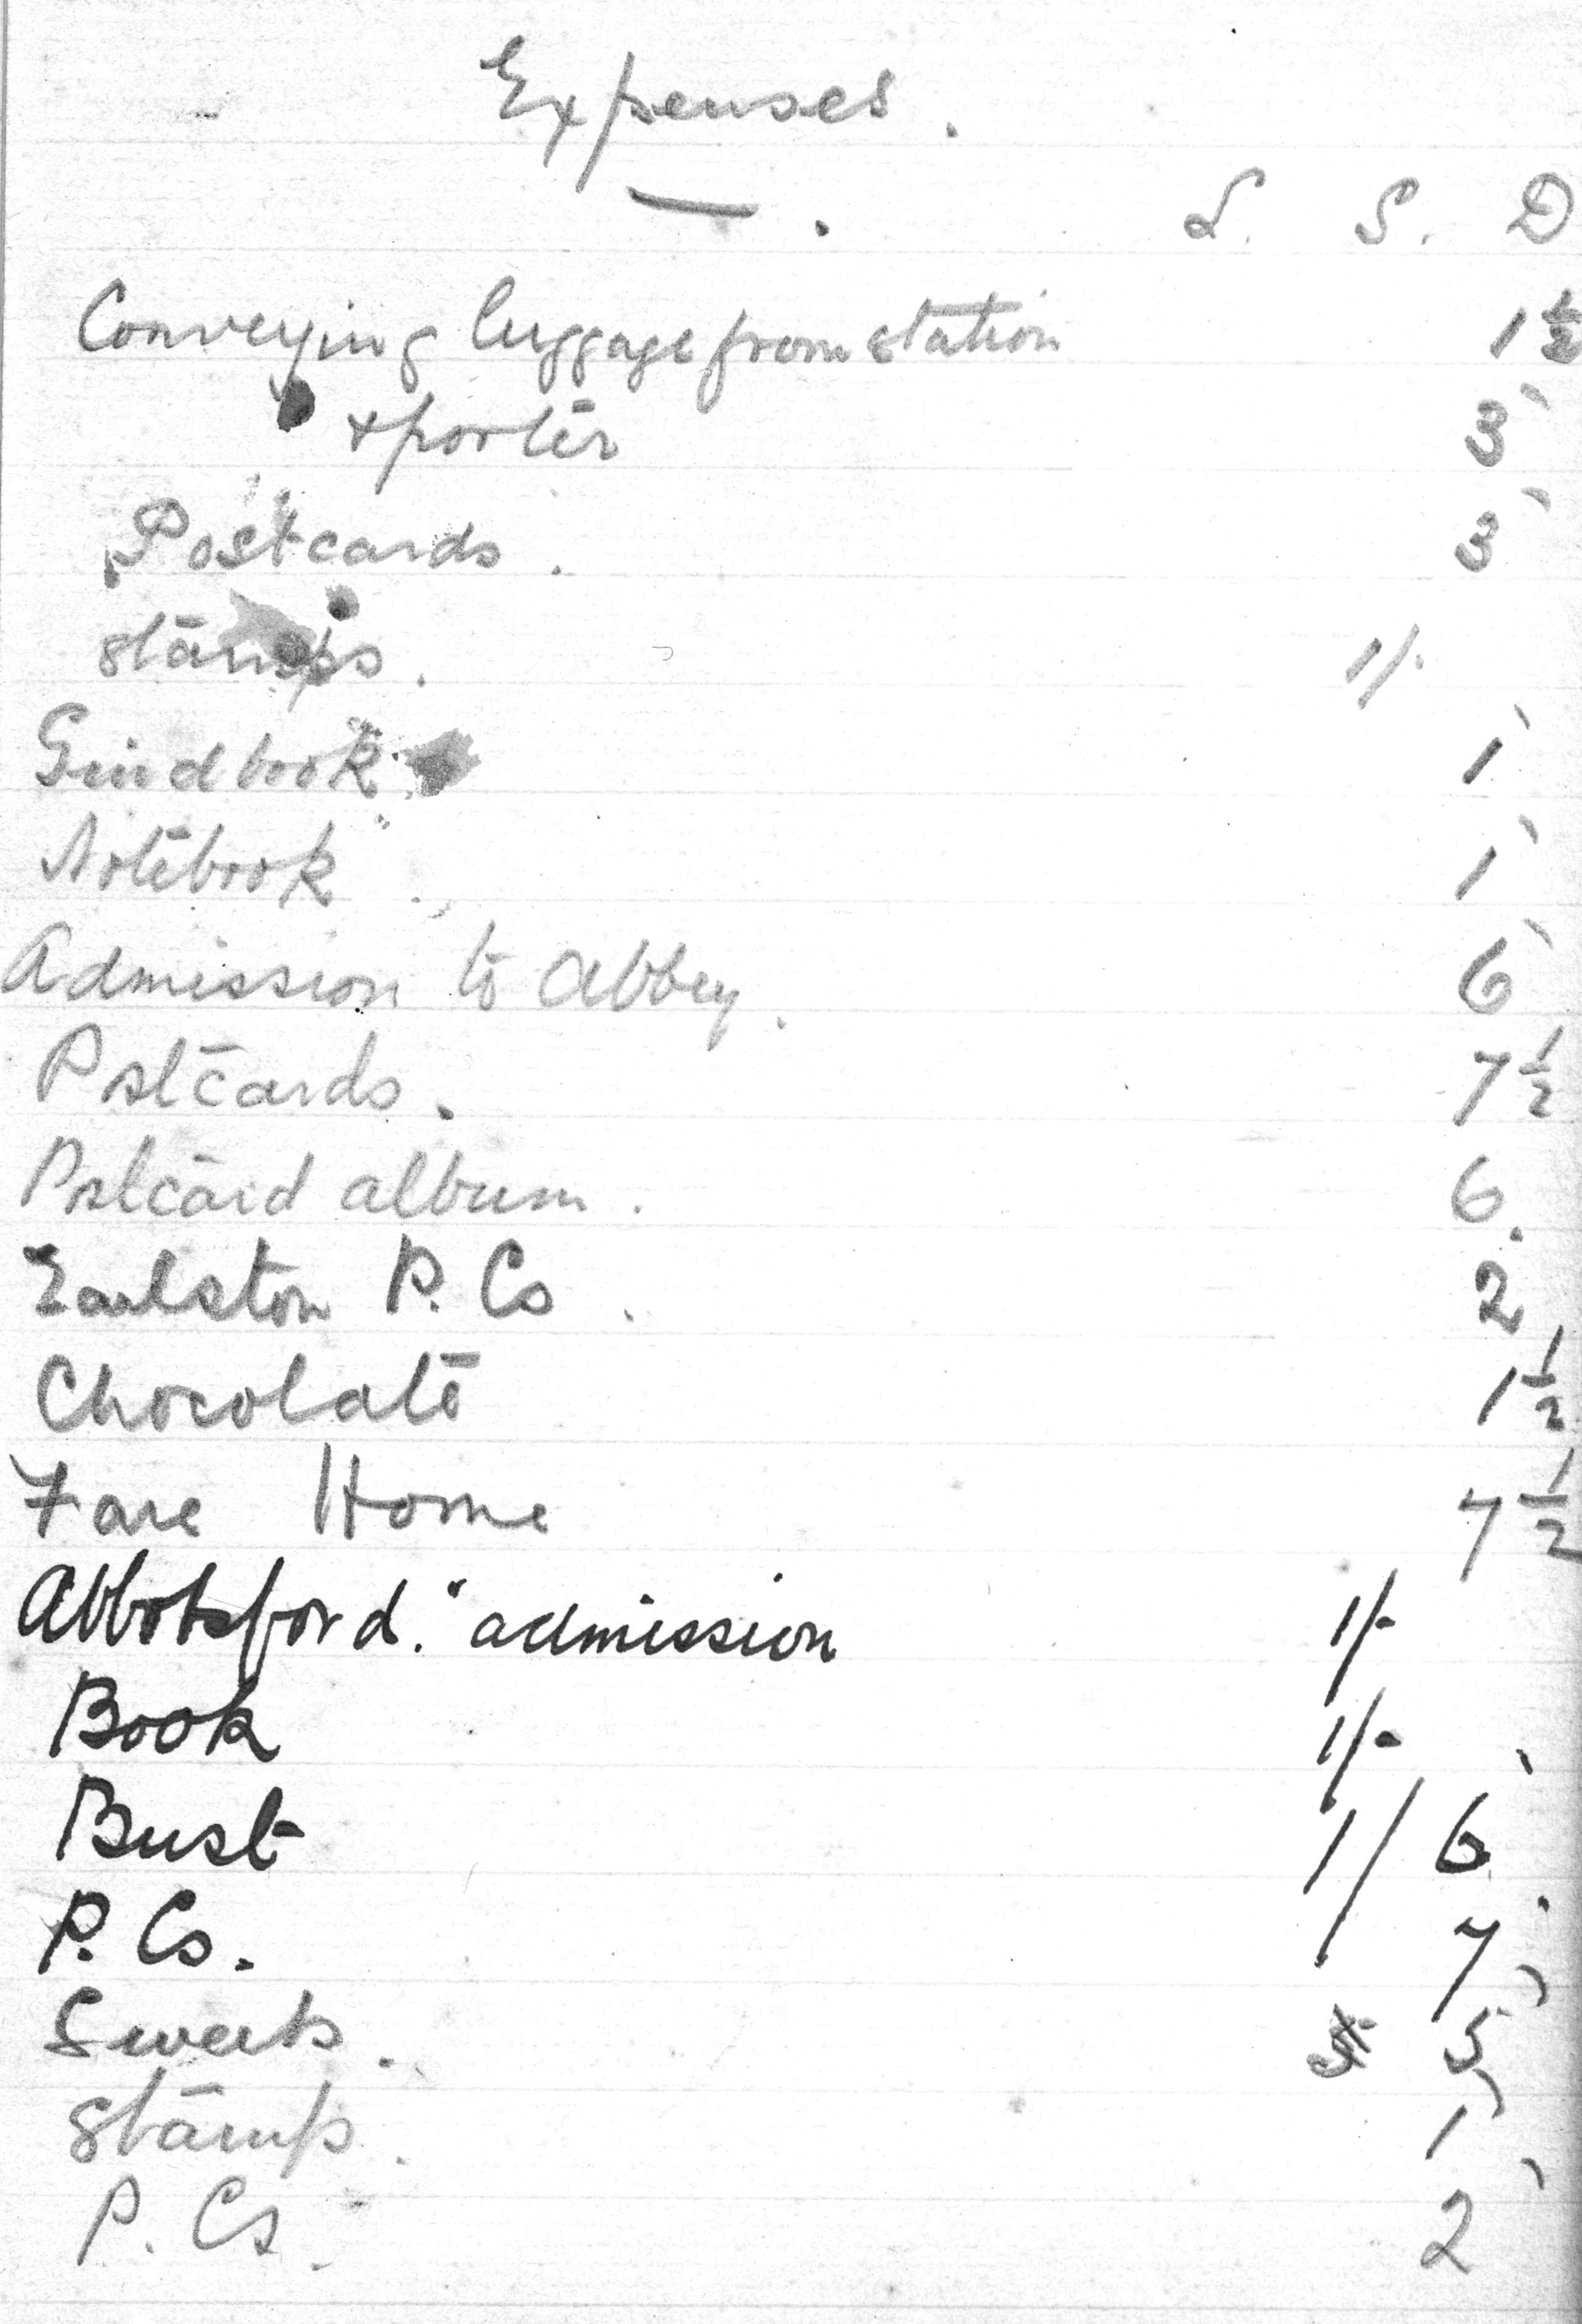 Expenses.
£. S. D
Conveying luggage from station 1½
+ porter 3
Postcards. 3
stamps. 1/-
Guidbook. 1
Notebook 1
Admission to Abbey. 6
Pstcards. 7½
Pstcard album. 6.
Earlston P. Cs. 2
Chocolate 1½
Fare Home 7½
Abbotsford. "admission 1/-
Book 1/-
Bust 1/6
P. Cs. 7
Sweets. 5
Stamp. 1
P. Cs. 2